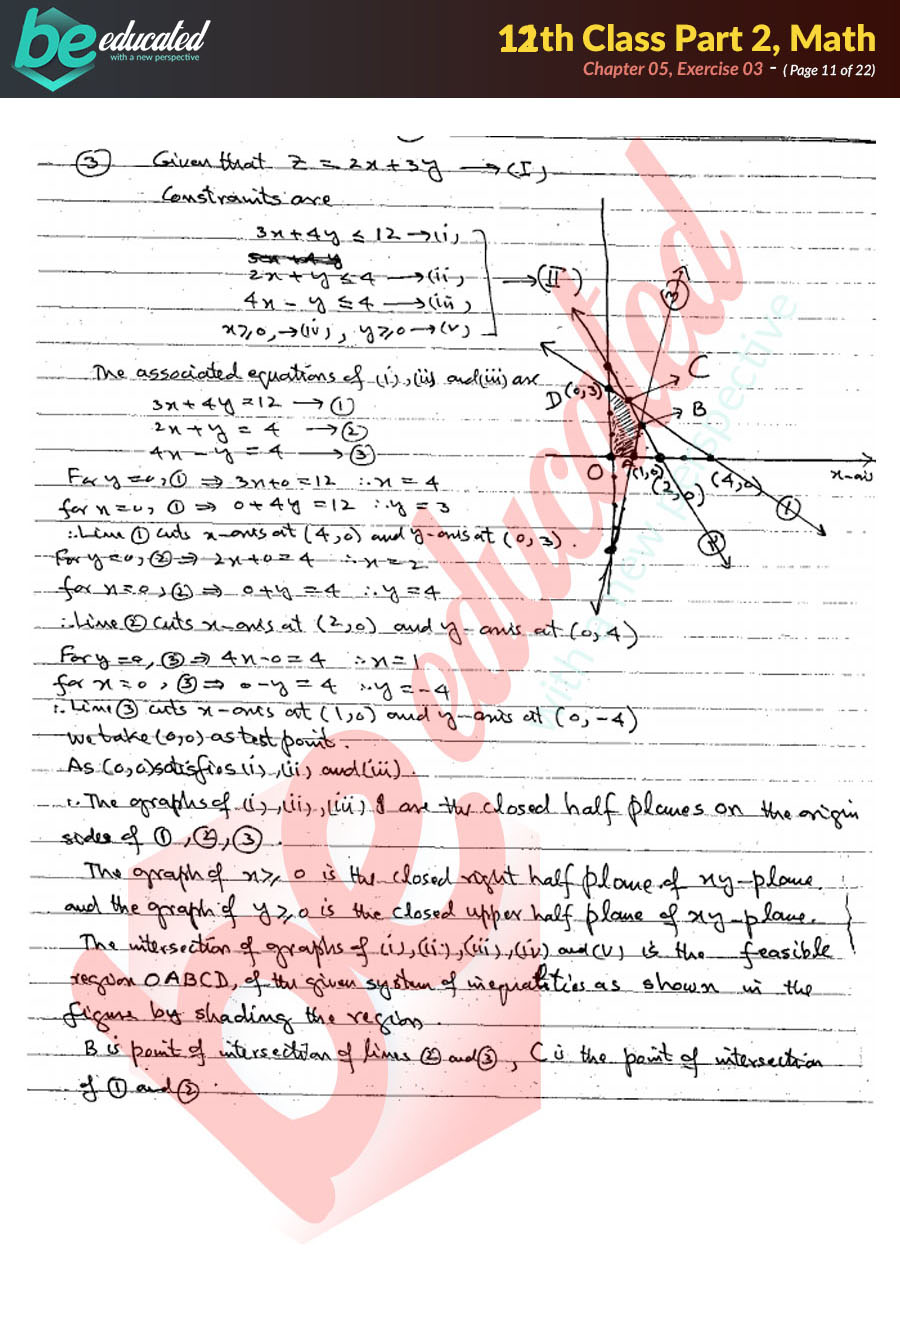 be educated
with a new perspective
12th Class Part 2, Math
Chapter 05, Exercise 03 - ( Page 11 of 22)
③ Given that z = 2x+3y → (I)
Constraints are
3x+4y ≤ 12 → (i)
2x+y ≤ 4 → (ii)
4x-y ≤ 4 → (iii)
x≥0, → (iv), y≥0 → (v)
→ (II)
The associated equations of (i), (ii) and (iii) are
3x+4y = 12 → ①
2x+y = 4 → ②
4x-y = 4 → ③
For y=0, ① ⇒ 3x+0=12 ∴ x=4
for x=0, ① ⇒ 0+4y=12 ∴ y=3
∴ Line ① cuts x-axis at (4,0) and y-axis at (0,3).
For y=0, ② ⇒ 2x+0=4 ∴ x=2
for x=0, ② ⇒ 0+y=4 ∴ y=4
∴ Line ② cuts x-axis at (2,0) and y-axis at (0,4)
For y=0, ③ ⇒ 4x-0=4 ∴ x=1
for x=0, ③ ⇒ 0-y=4 ∴ y=-4
∴ Line ③ cuts x-axis at (1,0) and y-axis at (0,-4)
We take (0,0) as test point.
As (0,0) satisfies (i), (ii) and (iii).
∴ The graphs of (i), (ii), (iii) are the closed half planes on the origin
sides of ①, ②, ③.
The graph of x≥0 is the closed right half plane of xy-plane.
and the graph of y≥0 is the closed upper half plane of xy-plane.
The intersection of graphs of (i), (ii), (iii), (iv) and (v) is the feasible
region OABCD, of the given system of inequalities as shown in the
figure by shading the region.
B is point of intersection of lines ② and ③, C is the point of intersection
of ① and ②.
C
D(0,3)
B
O
A(1,0)
(2,0)
(4,0)
x-axis
be educated
with a new perspective